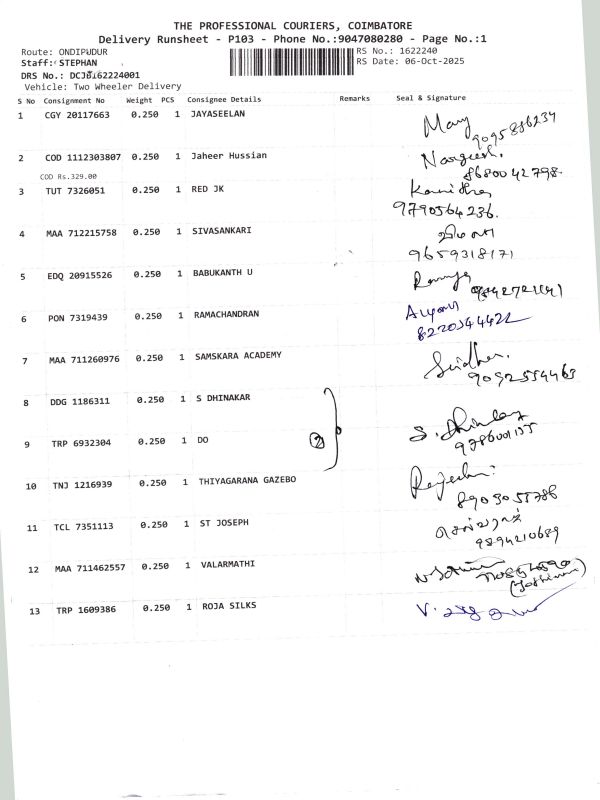 THE PROFESSIONAL COURIERS, COIMBATORE
Delivery Runsheet - P103 - Phone No.:9047080280 - Page No.:1
Route: ONDIPUDUR
RS No.: 1622240
Staff: STEPHAN
RS Date: 06-Oct-2025
DRS No.: DCJ0162224001
Vehicle: Two Wheeler Delivery
S No Consignment No Weight PCS Consignee Details Remarks Seal & Signature
1 CGY 20117663 0.250 1 JAYASEELAN Mary
9095886234
2 COD 1112303807 0.250 1 Jaheer Hussian
COD Rs.329.00 8680042798
3 TUT 7326051 0.250 1 RED JK
9790564236.
4 MAA 712215758 0.250 1 SIVASANKARI
9659318171
5 EDQ 20915526 0.250 1 BABUKANTH U Ramya
6 PON 7319439 0.250 1 RAMACHANDRAN
8220344422
7 MAA 711260976 0.250 1 SAMSKARA ACADEMY Sridhar.
9092554463
8 DDG 1186311 0.250 1 S DHINAKAR
9 TRP 6932304 0.250 1 DO 2 S. Dhinakar
10 TNJ 1216939 0.250 1 THIYAGARANA GAZEBO Rajesh
8903055786
11 TCL 7351113 0.250 1 ST JOSEPH செல்வராஜ்
9894210689
12 MAA 711462557 0.250 1 VALARMATHI
13 TRP 1609386 0.250 1 ROJA SILKS